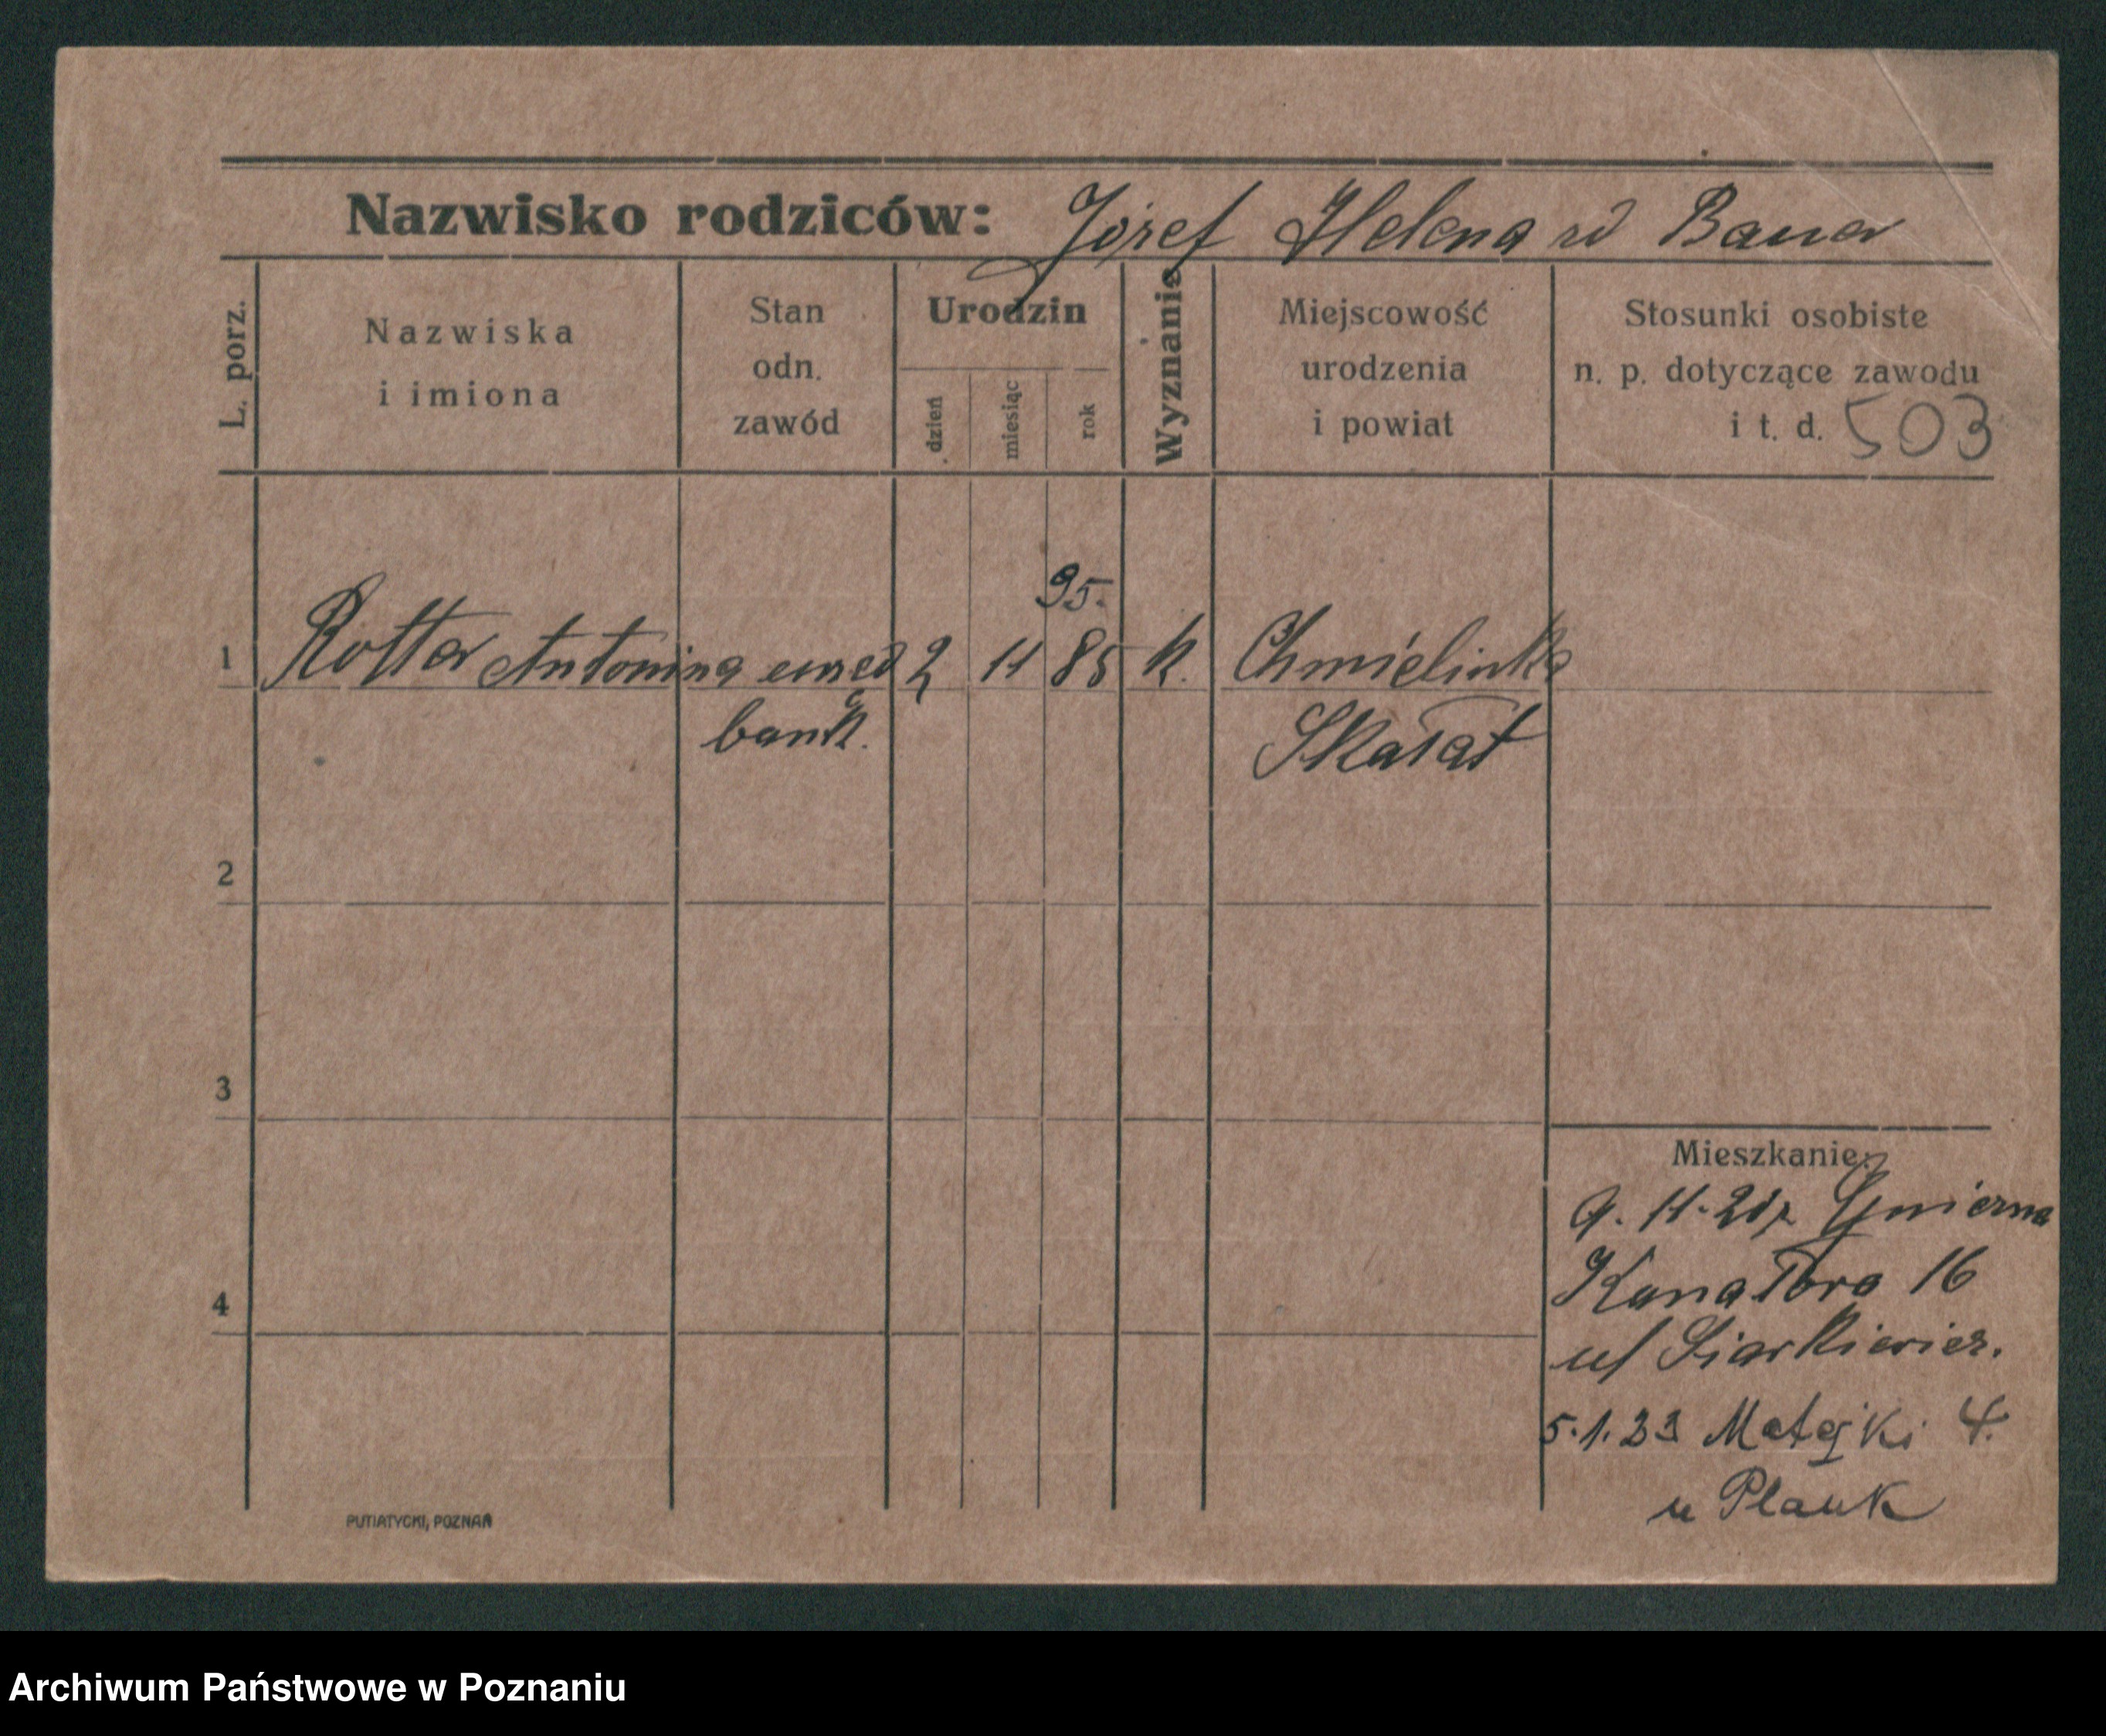 Nazwisko rodziców: Józef Helena zd Bauer
L. porz.
Nazwiska
i imiona
Stan
odn.
zawód
Urodzin
dzień
miesiąc
rok
Wyznanie
Miejscowość
urodzenia
i powiat
Stosunki osobiste
n. p. dotyczące zawodu
i t. d. 503
95.
1 Rotter Antonina 2 11 85 k. Chmielinka
bank. Skałat
2
3
4
Mieszkanie:
11.
16
5.1.23 Matejki 4.
u Plauk
PUTIATYCKI, POZNAŃ
Archiwum Państwowe w Poznaniu